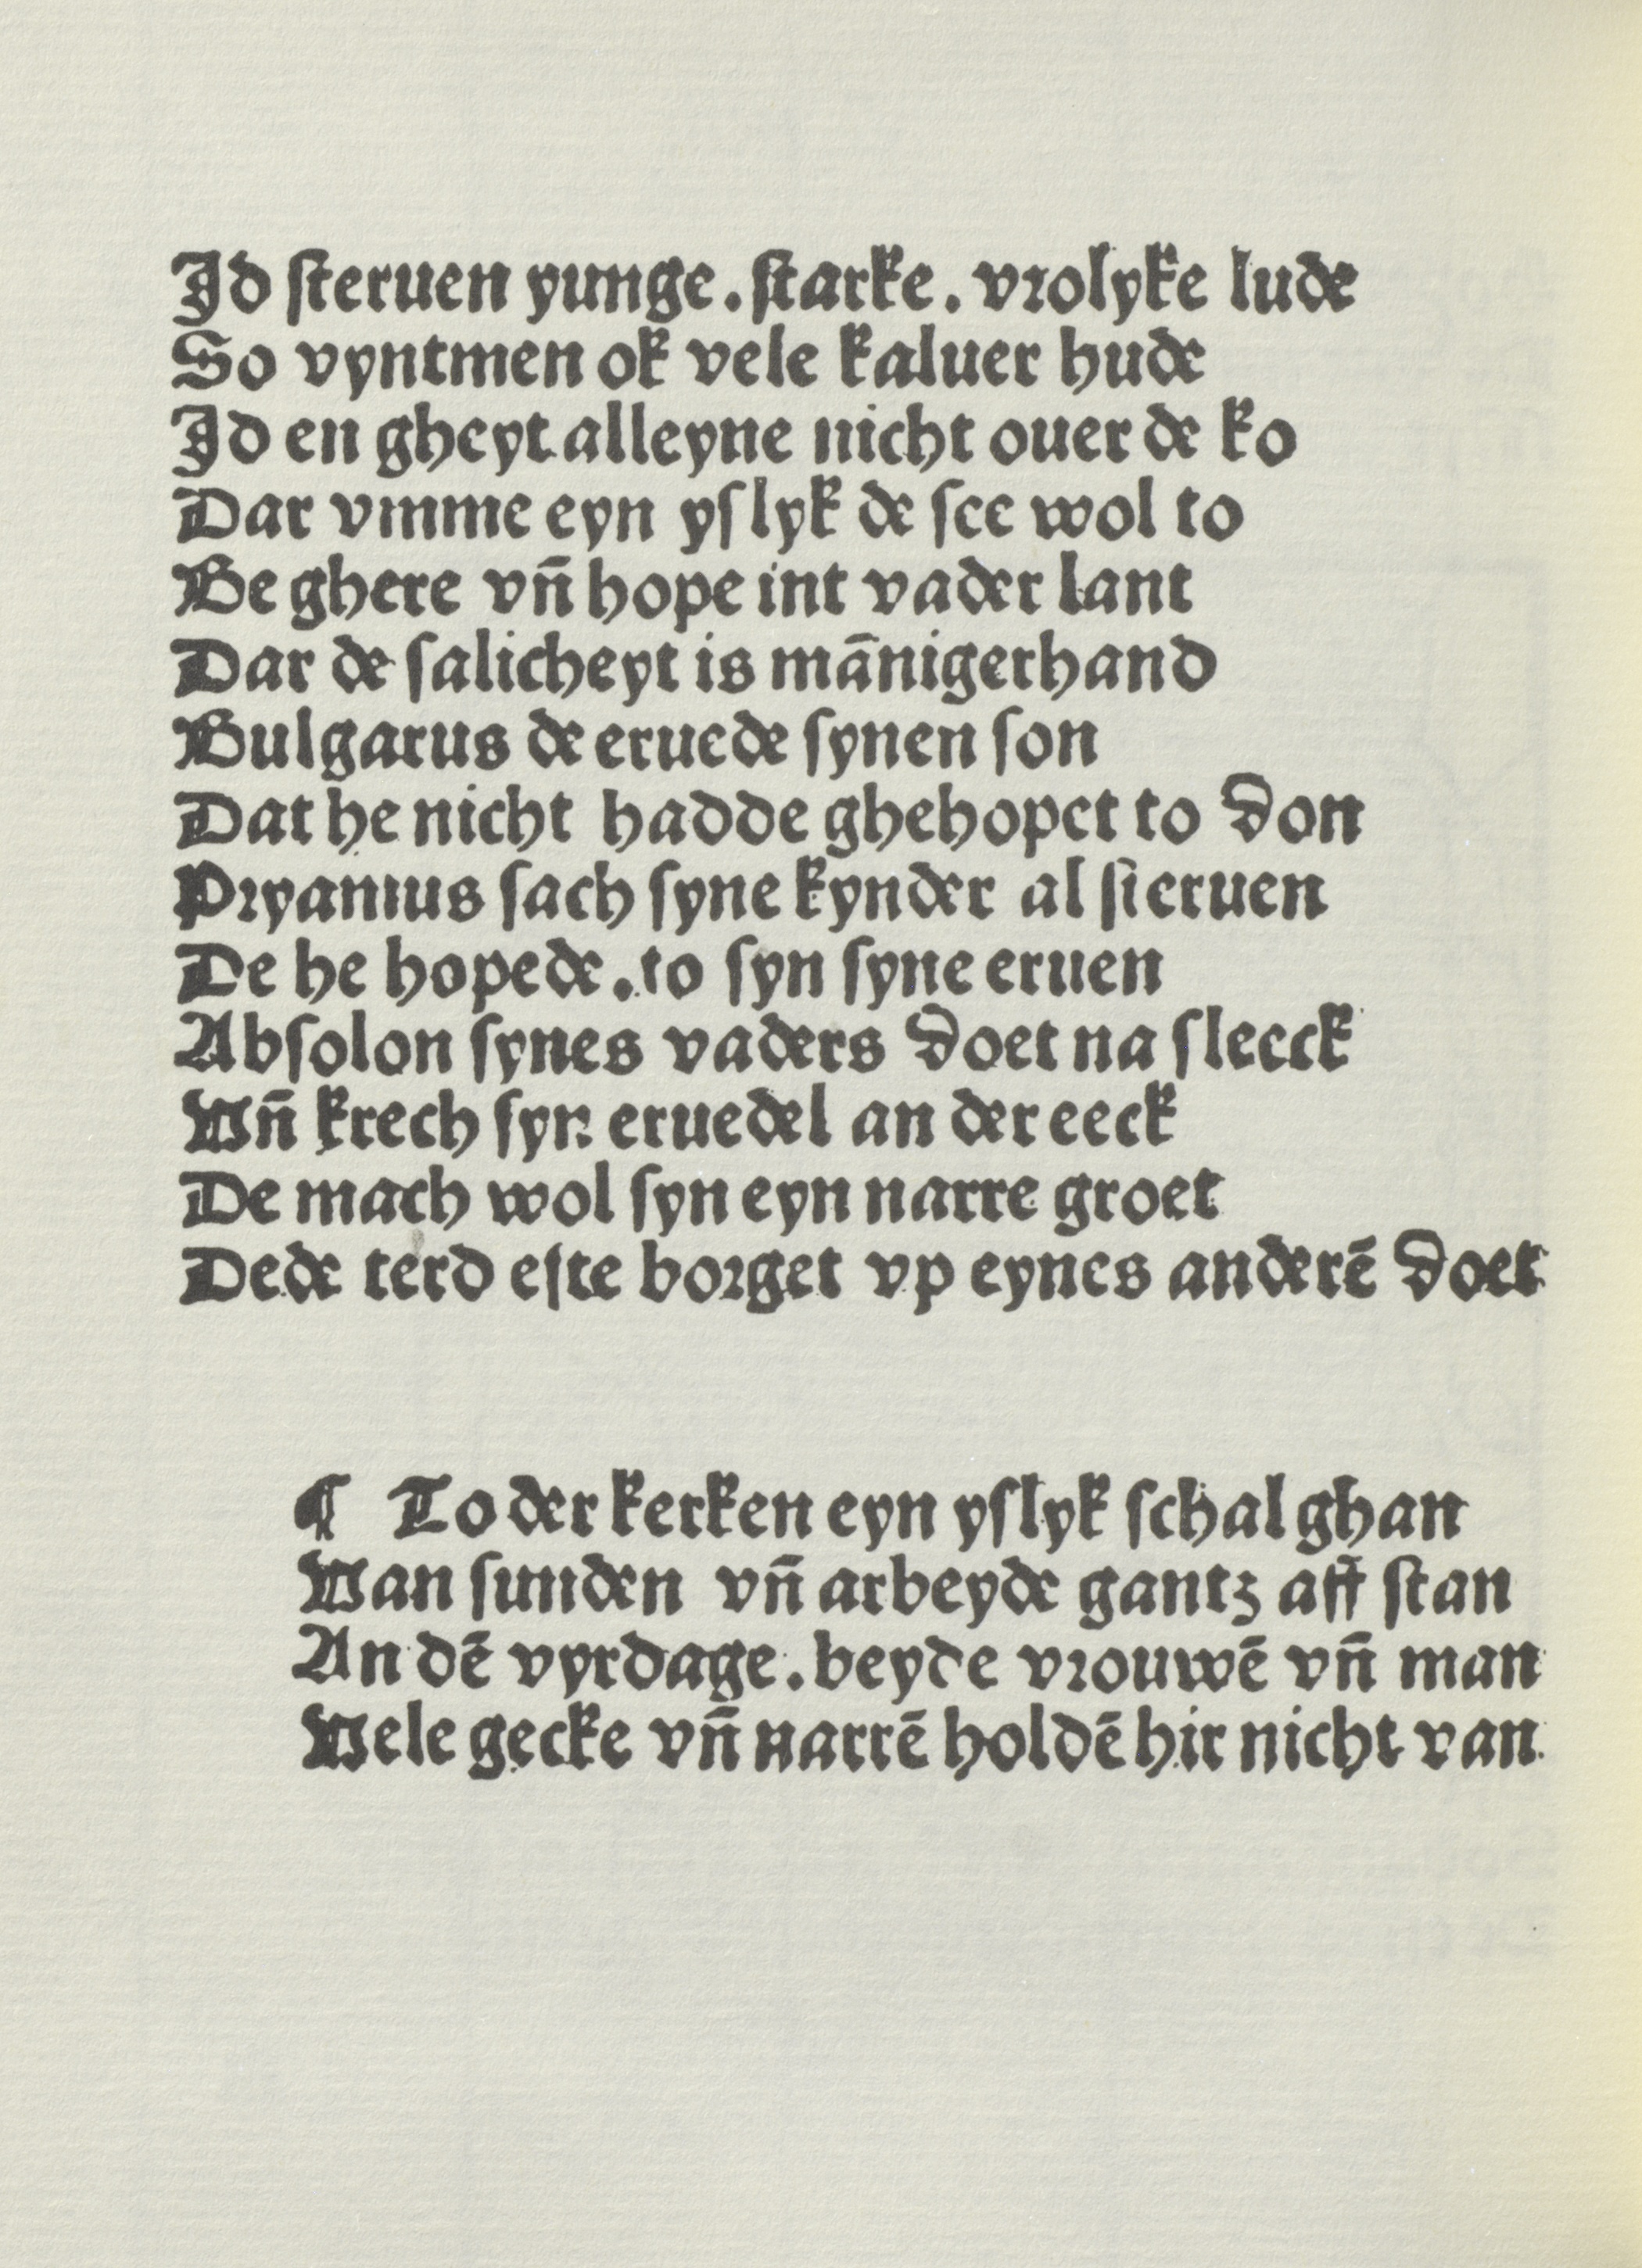 Jd ſteruen yunge. ſtarke. vrolyke lude
So vyntmen ok vele kaluer hude
Jd en gheyt alleyne nicht ouer de ko
Dar vmme eyn yſlyk de ſee wol to
Be ghere vn̄ hope int vader lant
Dar de ſalicheyt is mānigerhand
Bulgarus de eruede ſynen ſon
Dat he nicht hadde ghehopet to don
Pryamus ſach ſyne kynder al ſteruen
De he hopede. to ſyn ſyne eruen
Abſolon ſynes vaders doet na ſleeck
Vn̄ krech ſyn eruedel an der eeck
De mach wol ſyn eyn narre groet
Dede terd efte borget vp eynes anderē doet
¶ To der kerken eyn yſlyk ſchal ghan
Van ſunden vn̄ arbeyde gantz aff ſtan
An dē vyrdage. beyde vrouwē vn̄ man
Vele gecke vn̄ narrē holdē hir nicht van